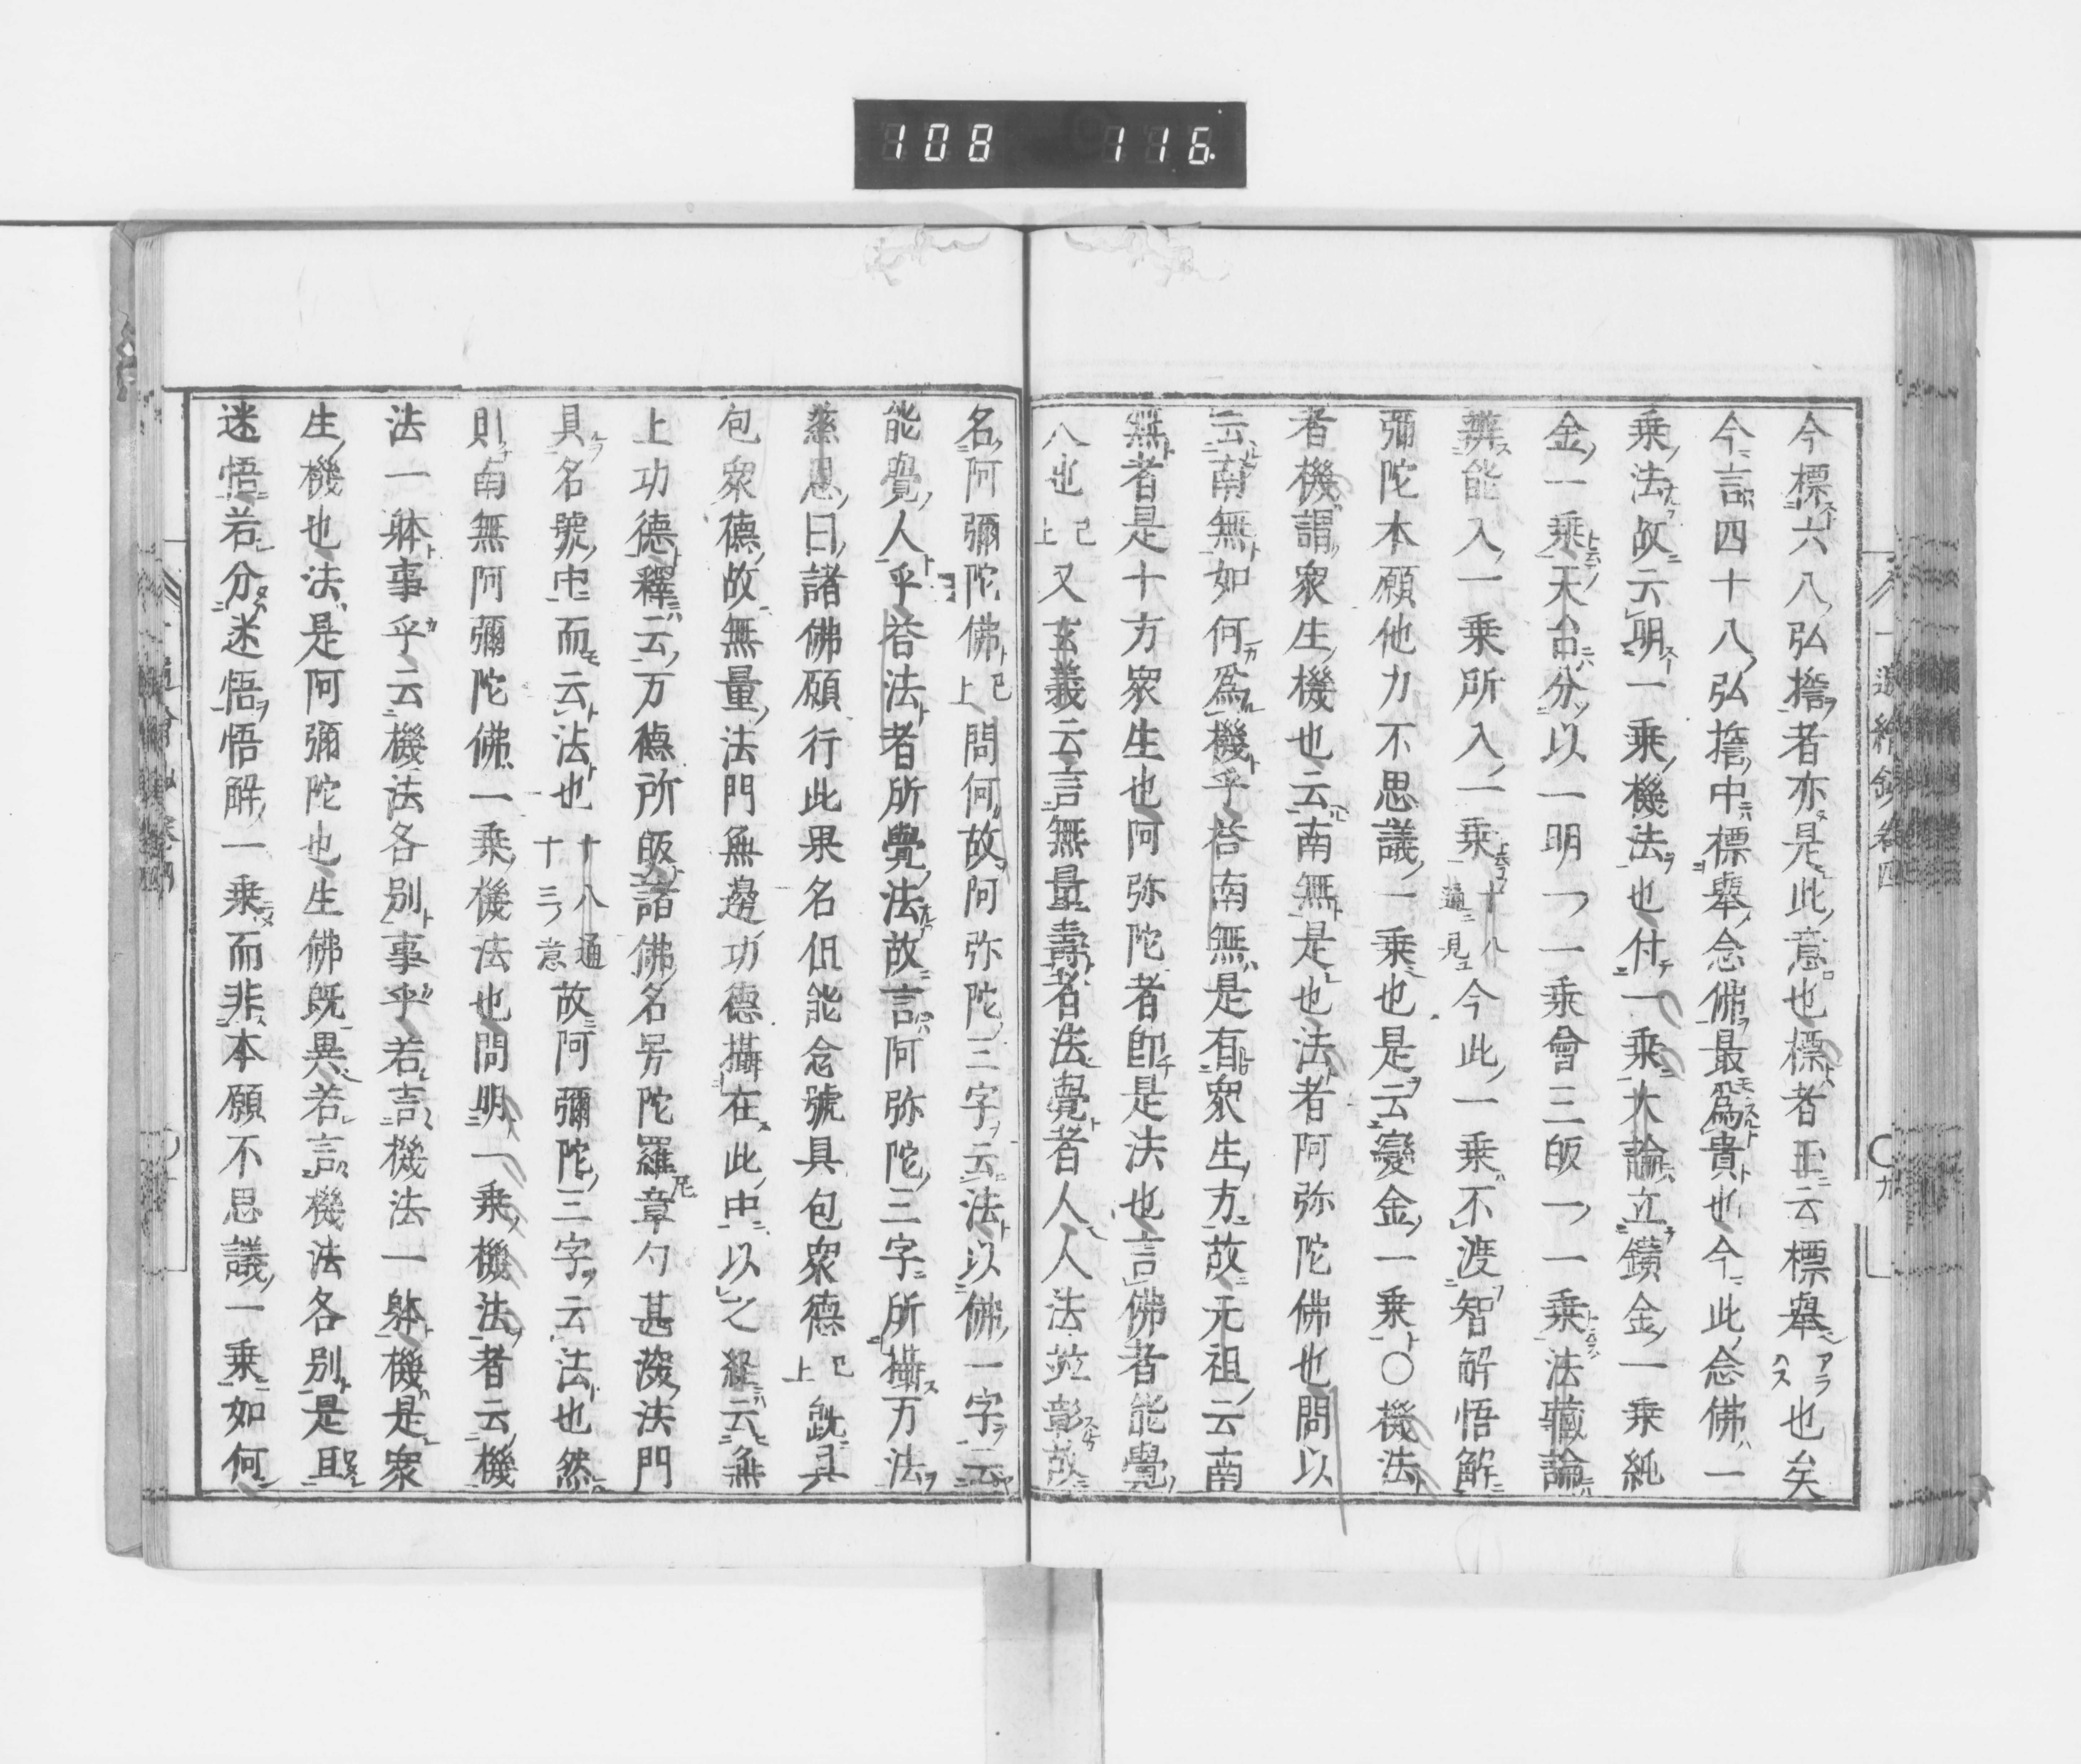 108 116
今標六八弘擔者亦是此意也標者玉云標擧アラハス也矣
今言四十八弘擔中標擧念佛最爲貴也今此念佛一
乗法故云明一乗機法也付一乗大論立鑛金一乗純
金一乗天台分以一明一一乗會三皈一一乗法藏論
辨能入一乗所入一乗十八通見今此一乗不渡智解悟解
彌陀本願他力不思議一乗也是云變金一乗〇機法
者機謂衆生機也云南無是也法者阿弥陀佛也問以
云南無如何爲機乎荅南無是有衆生方故元祖云南
無者是十方衆生也阿弥陀者即是法也言佛者能覺
人也已上又玄義云言無量壽者法覺者人人法並彰故
名阿彌陀佛已上問何故阿弥陀三字云法以佛一字云
能覺人乎荅法者所覺法故言阿弥陀三字所攝万法
慈恩曰諸佛願行此果名但能念號具包衆德已上既具
包衆德故無量法門無邊功德攝在此中以之經云無
上功德釋云万德所皈諸佛名号陀羅尼章勺甚深法門
具名號中而云法也十八通十三ノ意故阿彌陀三字云法也然
則南無阿彌陀佛一乗機法也問明一乗機法者云機
法一躰事乎云機法各別事乎若言機法一躰機是衆
生機也法是阿彌陀也生佛既異若言機法各別是且
迷悟若分迷悟悟解一乗而非本願不思議一乗如何
一遍繪鈔卷四